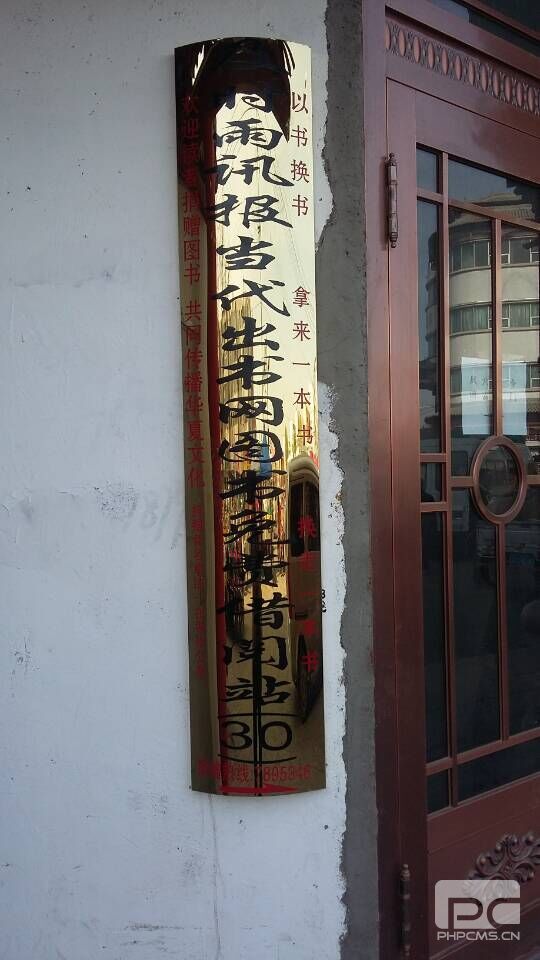 以书换书 拿来一本书 换走一本书
及时雨讯报当代出书网图书免费借阅站
30
欢迎读者捐赠图书 共同传播华夏文化
895346
PC
PHPCMS.CN